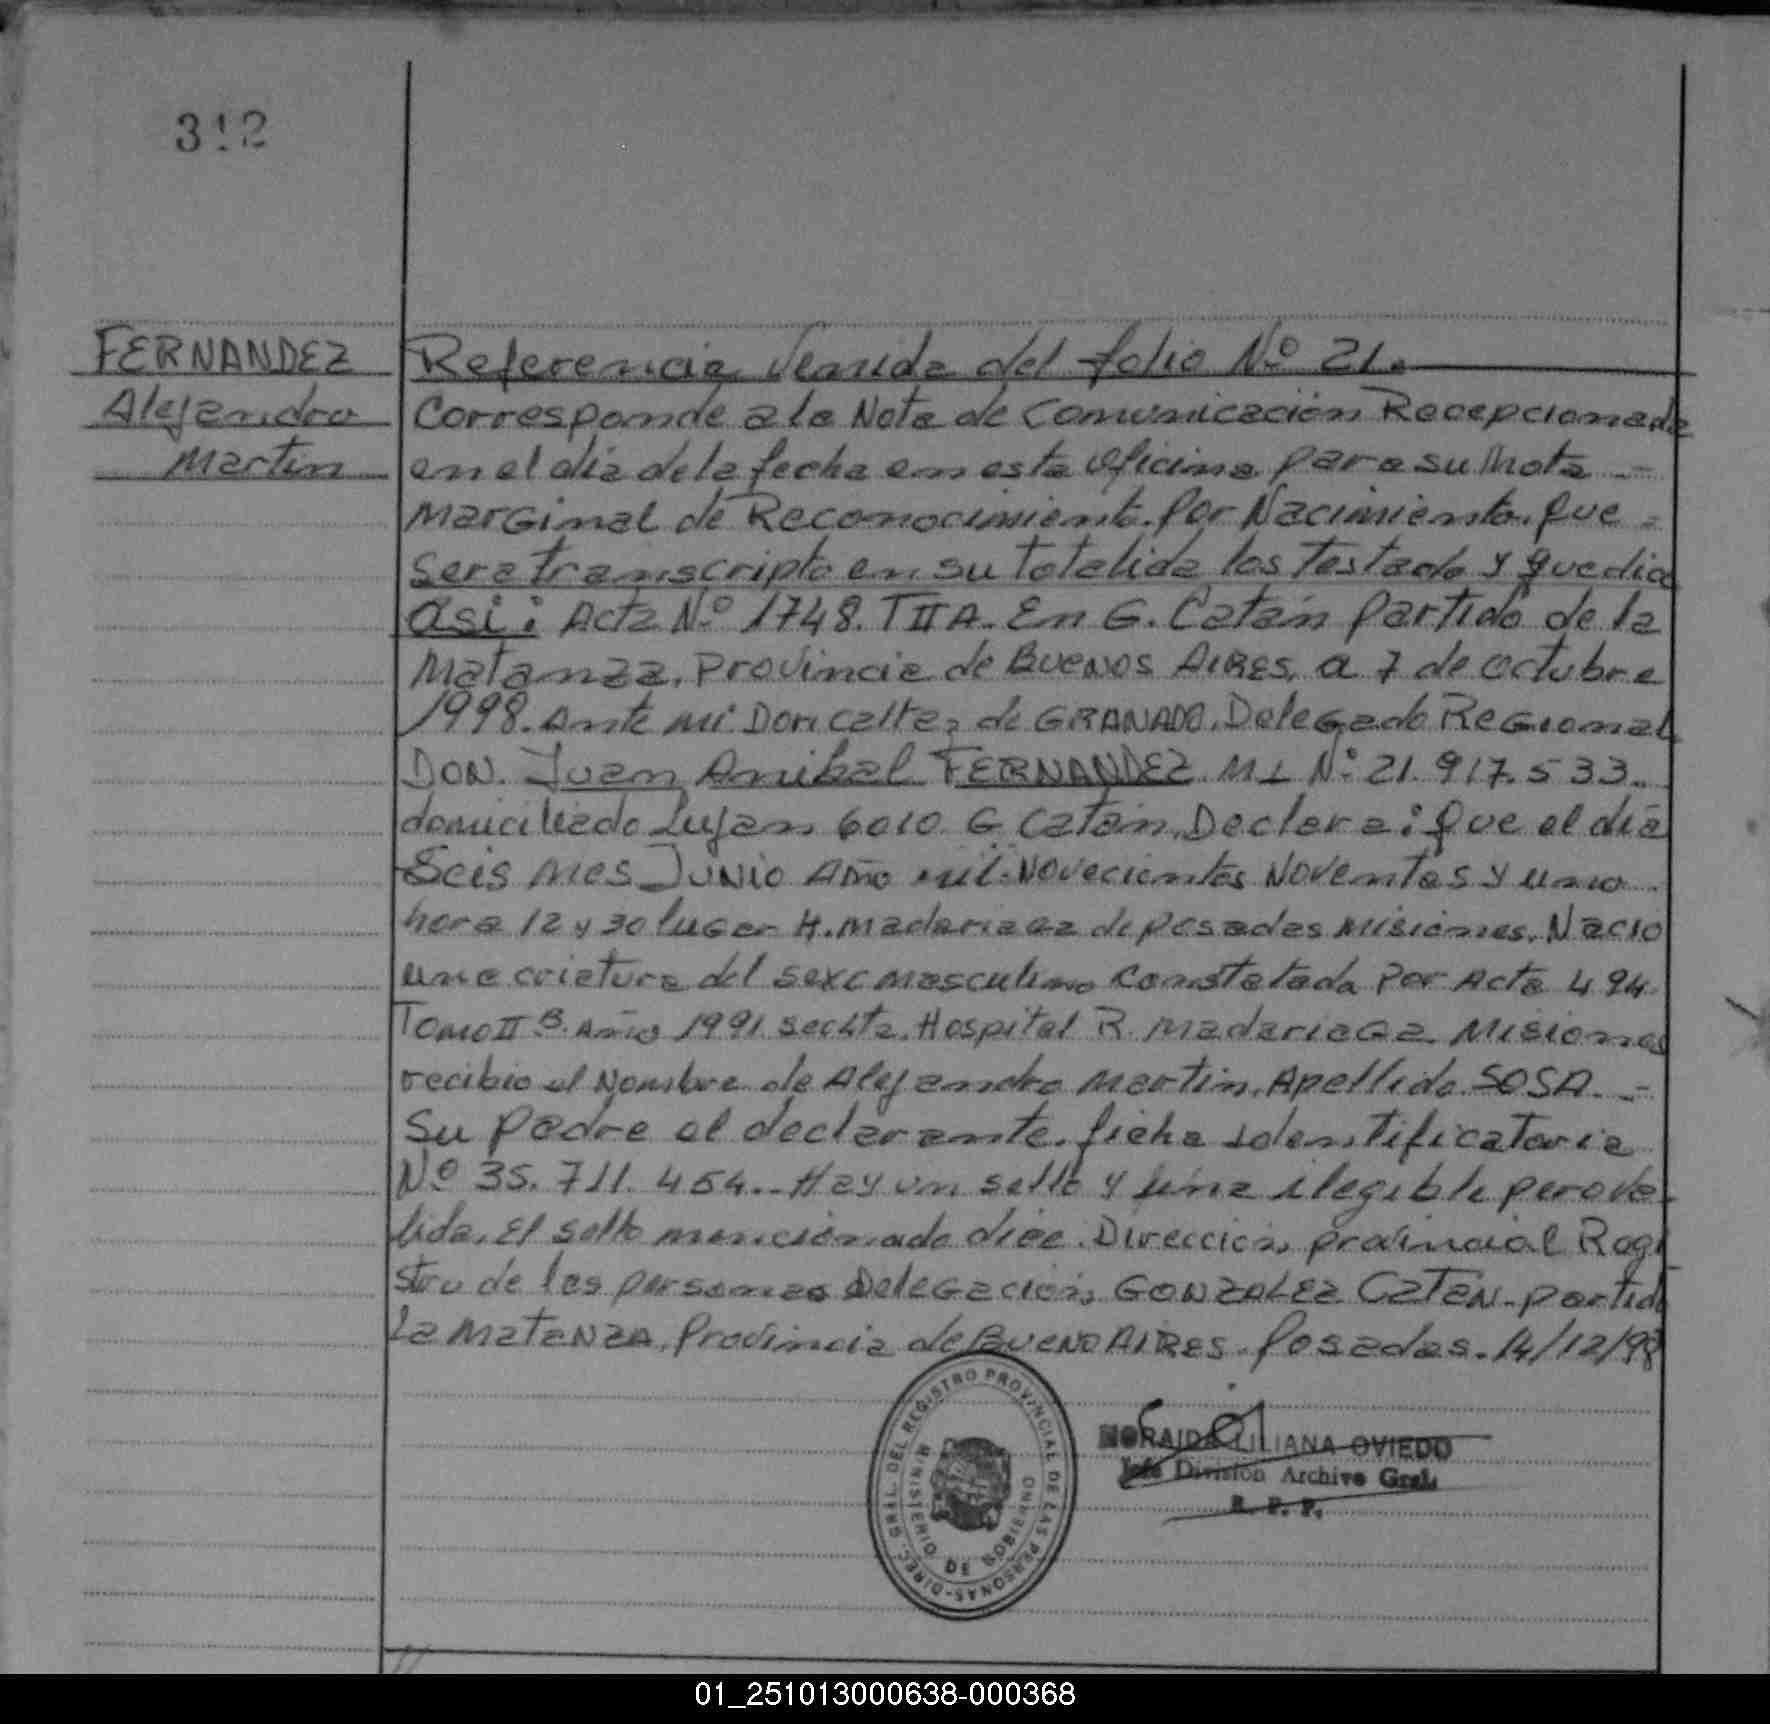 312
FERNANDEZ
Alejandro
Martin
Referencia Venida del folio Nº 21.
Corresponde a la Nota de Comunicación Recepcionada
en el día de la fecha en esta Oficina para su Nota -
Marginal de Reconocimiento por Nacimiento. que =
sera transcripto en su totalida los Testado y que dice
así: Acta Nº 1748. T II A. En G. Catán Partido de la
Matanza, Provincia de Buenos AIRES, a 7 de octubre
1998. Ante mi de GRANADO, Delegado Regional
DON. Juan Anibal FERNANDEZ M I Nº 21.917.533.
domiciliado Lujan 6010 G Catán, Declara: Que el día
Seis mes JUNIO Año mil Novecientos Noventas y uno
hora 12 y 30 lugar H. Madariaga de posadas Misiones. Nacio
una criatura del sexo masculino Constatada Por Acta 494
Tomo II B. Año 1991. Hospital R. Madariaga Misiones
recibio el Nombre de Alejandro Martin, Apellido SOSA. -
Su Padre el declarante. ficha identificatoria
Nº 35.711.454.- Hay un sello y firma ilegible pero va-
lida. El sello mencionado dice. Dirección provincial Regi
stro de las personas Delegación GONZALEZ Catán - partido
La MATANZA, Provincia de BUENO AIRES. Posadas. 14/12/98
DIREC. GRAL. DEL REGISTRO PROVINCIAL DE LAS PERSONAS
MINISTERIO DE GOBIERNO
NORAIDA LILIANA OVIEDO
Jefe División Archivo Gral.
R. P. P.
01_251013000638-000368